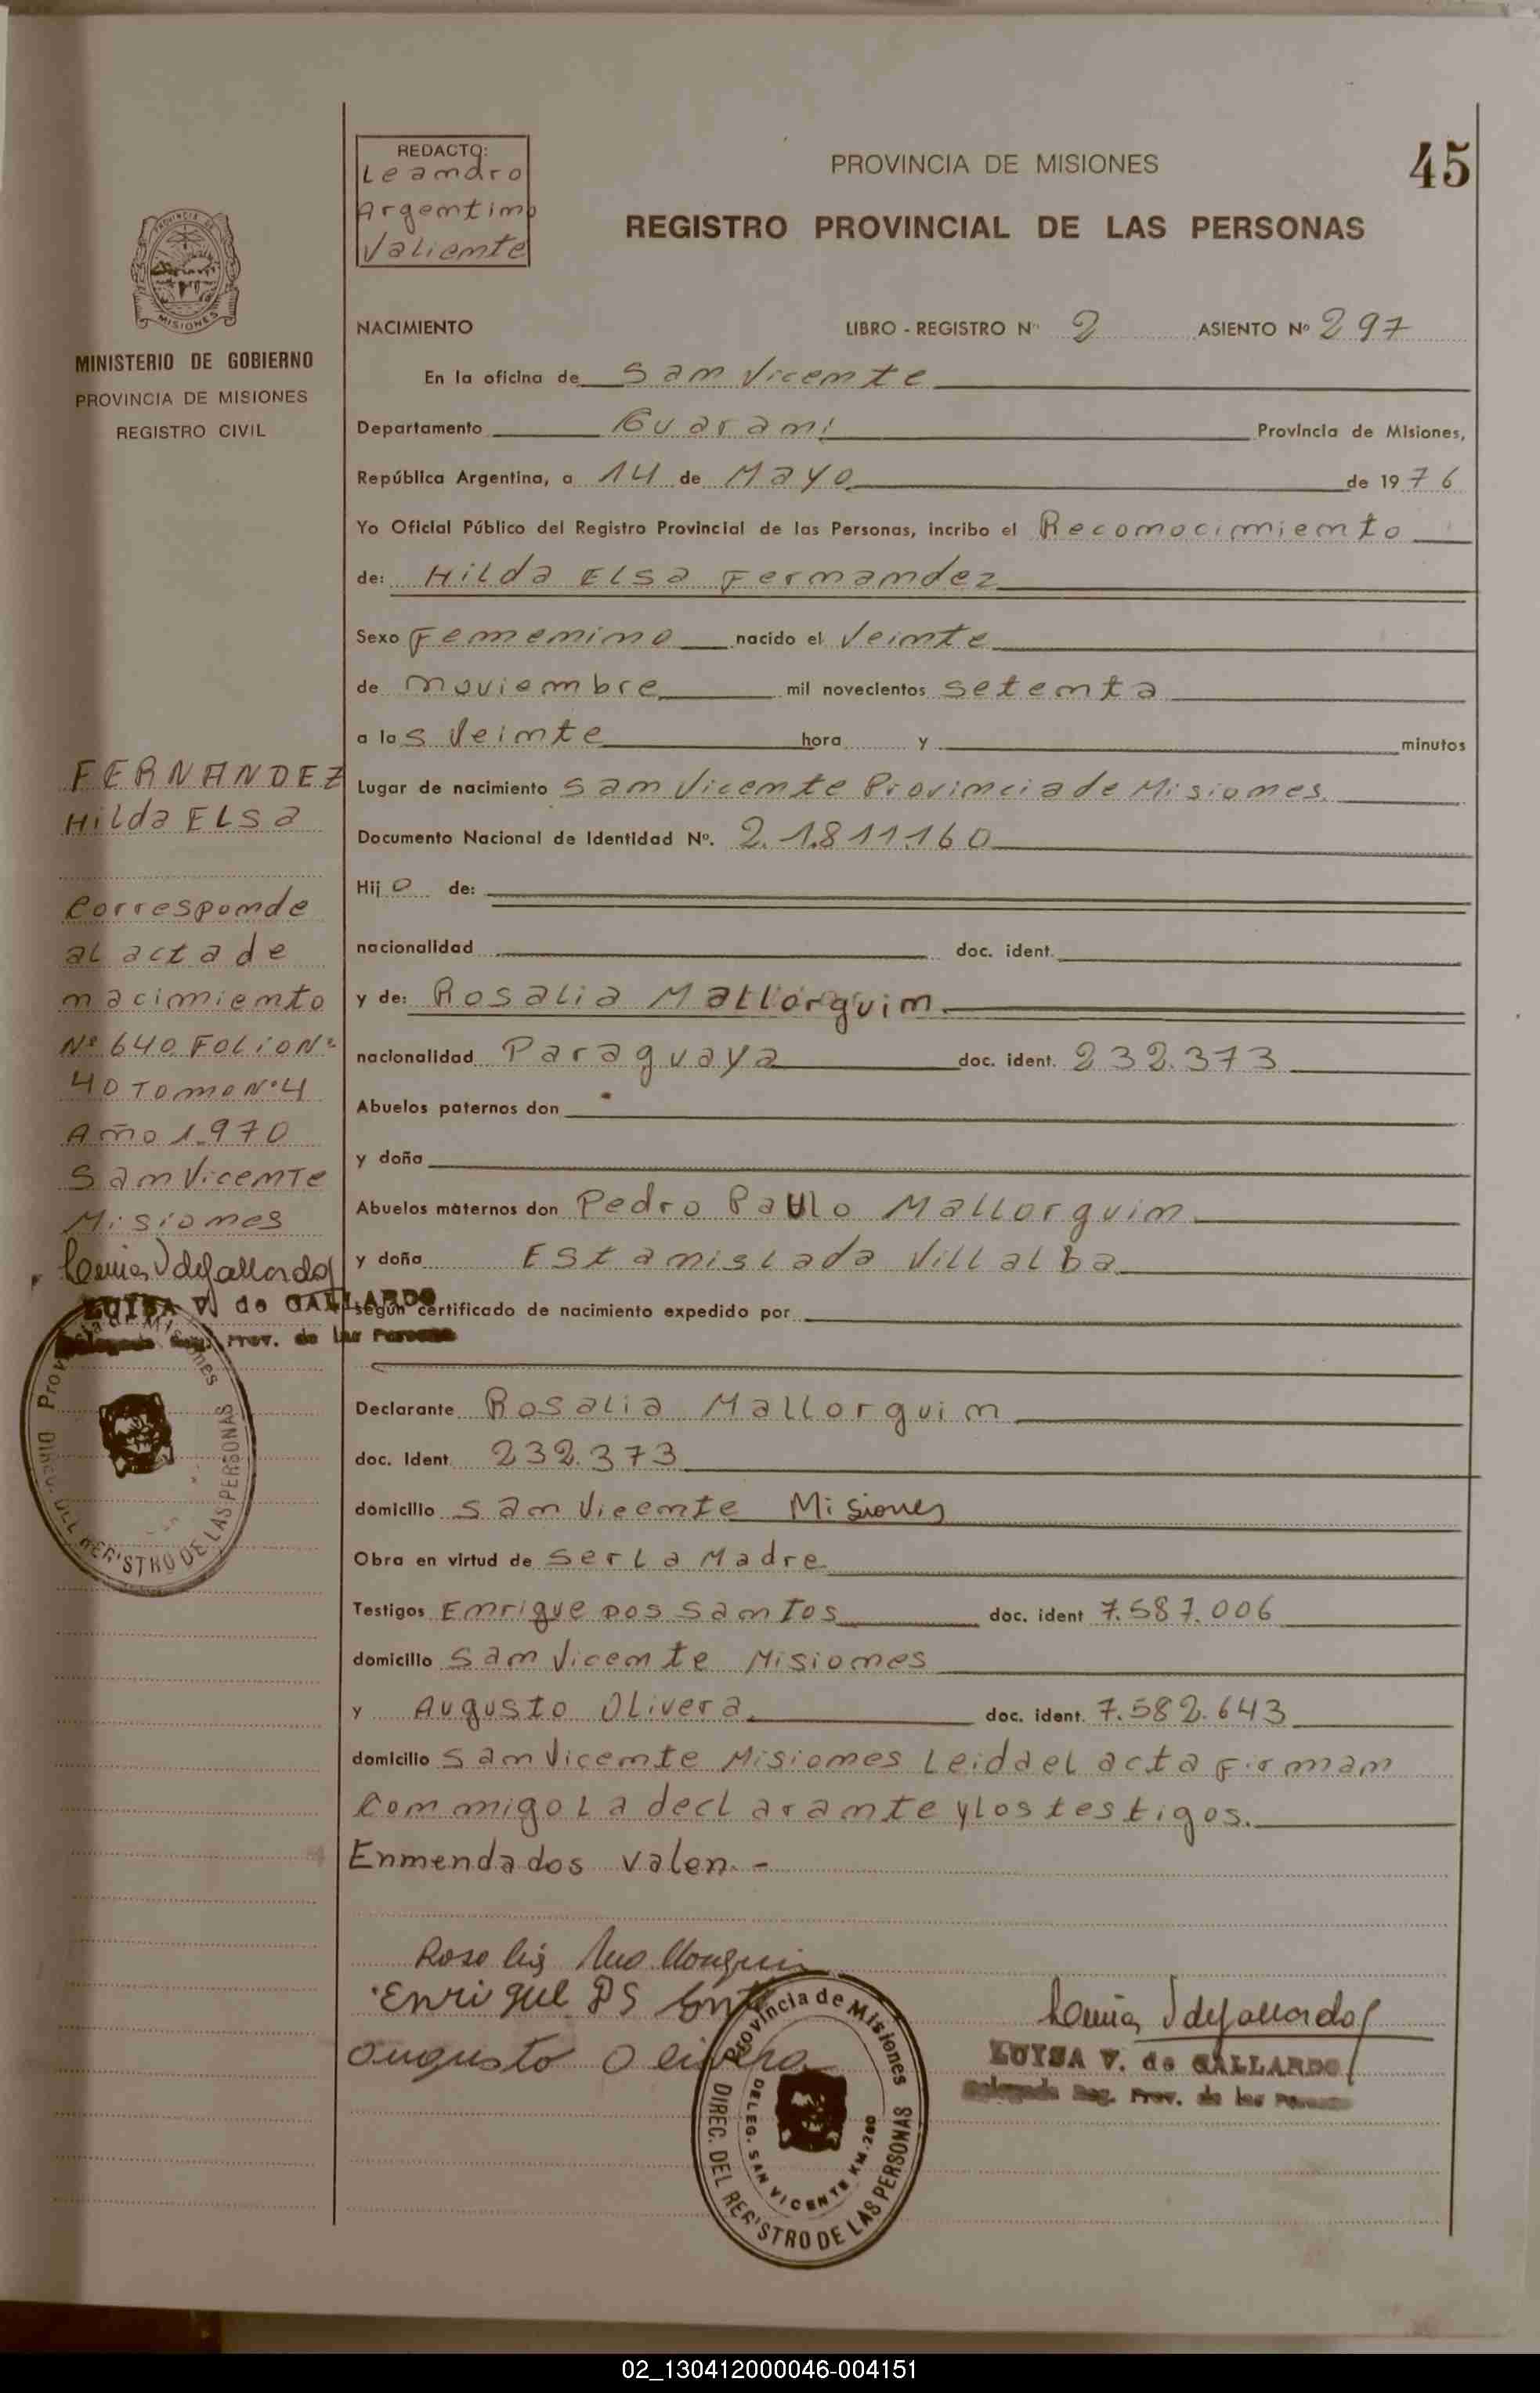 REDACTO:
Leandro
Argentino
Valiente
PROVINCIA DE MISIONES
45
REGISTRO PROVINCIAL DE LAS PERSONAS
PROVINCIA DE
MISIONES
MINISTERIO DE GOBIERNO
PROVINCIA DE MISIONES
REGISTRO CIVIL
NACIMIENTO LIBRO - REGISTRO Nº 2 ASIENTO Nº 297
En la oficina de San Vicente
Departamento Guarani Provincia de Misiones,
República Argentina, a 14 de Mayo de 1976
Yo Oficial Público del Registro Provincial de las Personas, incribo el Reconocimiento
de: Hilda Elsa Fernandez
Sexo Femenino nacido el Veinte
de noviembre mil novecientos setenta
a las Veinte hora y minutos
Lugar de nacimiento San Vicente Provincia de Misiones.
Documento Nacional de Identidad Nº. 21.811.160
Hijo de:
nacionalidad doc. ident.
y de: Rosalia Mallorquin
nacionalidad Paraguaya doc. ident. 232.373
Abuelos paternos don
y doña
Abuelos maternos don Pedro Paulo Mallorquin
y doña Estanislada Villalba
según certificado de nacimiento expedido por
Declarante Rosalia Mallorquin
doc. Ident 232.373
domicilio San Vicente Misiones
Obra en virtud de ser La Madre
Testigos Enrique Dos Santos doc. ident 7.587.006
domicilio San Vicente Misiones
y Augusto Olivera doc. ident. 7.582.643
domicilio San Vicente Misiones Leida el acta Firman
Conmigo La declarante y los testigos.
Enmendados valen.-
FERNANDEZ
Hilda ELSA
Corresponde
al acta de
nacimiento
Nº 640 Folio Nº
40 Tomo Nº 4
Año 1.970
San Vicente
Misiones
LUISA V. de GALLARDO
Delegada Reg. Prov. de las Personas
Provincia de Misiones
DIREC. DEL REGISTRO DE LAS PERSONAS
Rosalia Mallorquin
Enrique DS Snt
Augusto Olivera
Provincia de Misiones
DELEG. SAN VICENTE KM. 260
DIREC. DEL REGISTRO DE LAS PERSONAS
LUISA V. de GALLARDO
Delegada Reg. Prov. de las Personas
02_130412000046-004151